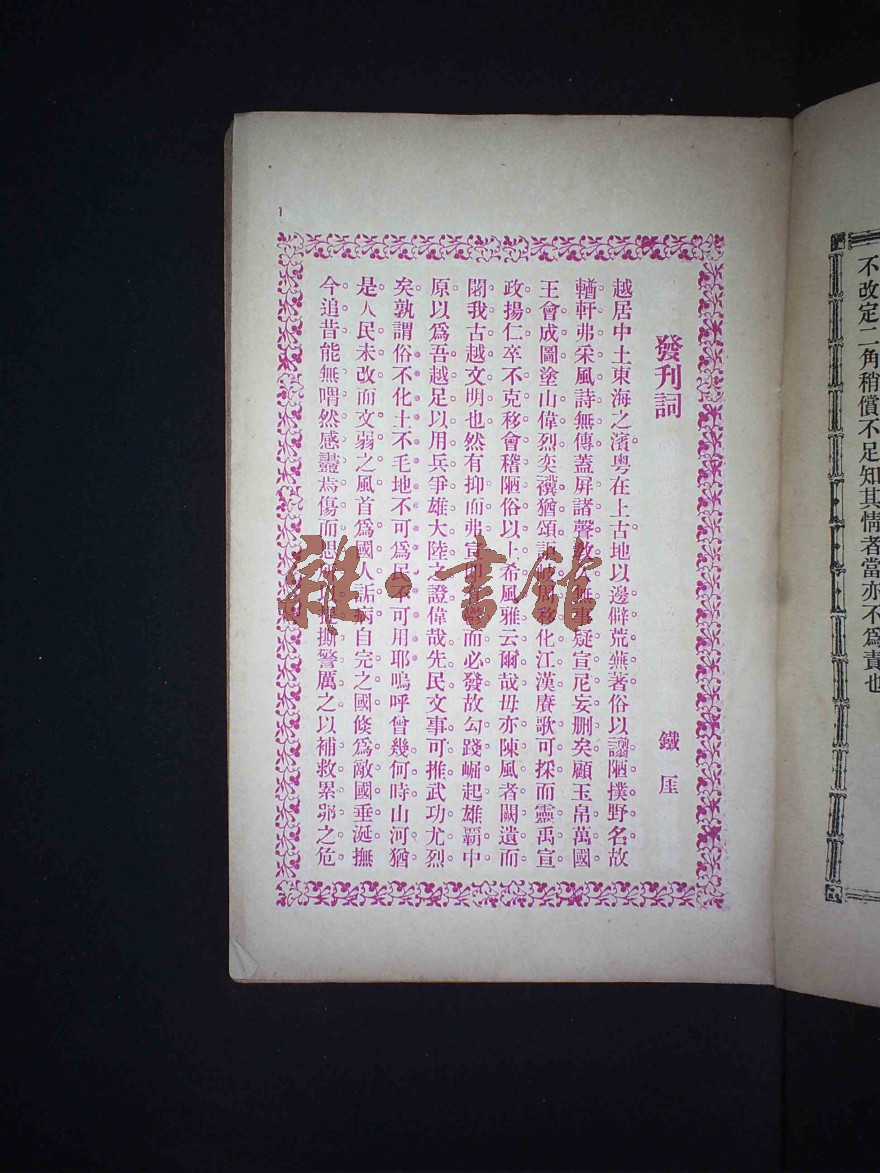 不改定二角稍償不足知其情者當亦不爲責也
發刊詞
鐵厓
越居中土東海之濱粵在上古地以邊僻荒蕪著俗以譾陋撲野名故
輶軒弗采風詩無傳蓋屏諸聲教無事疑宣尼妄刪矣顧玉帛萬國
王會成圖塗山偉烈奕禩猶頌風移化江漢賡歌可採而靈禹宣
政揚仁卒不克移會稽陋俗以上希風雅云爾哉毋亦陳風者闕遺而
閟我古越文明也然有抑而弗宣而必發故勾踐崛起雄霸中
原以爲吾越足以用兵爭雄大陸之證偉哉先民文事可推武功尤烈
矣孰謂俗不化土不毛地不可爲民不可用耶嗚呼曾幾何時山河猶
是人民未改而文弱之風首爲國人詬病自完之國倐爲敵國垂涎撫
今追昔能無喟然感衋焉傷而思撕警厲之以補救累卵之危
雜·書館
1